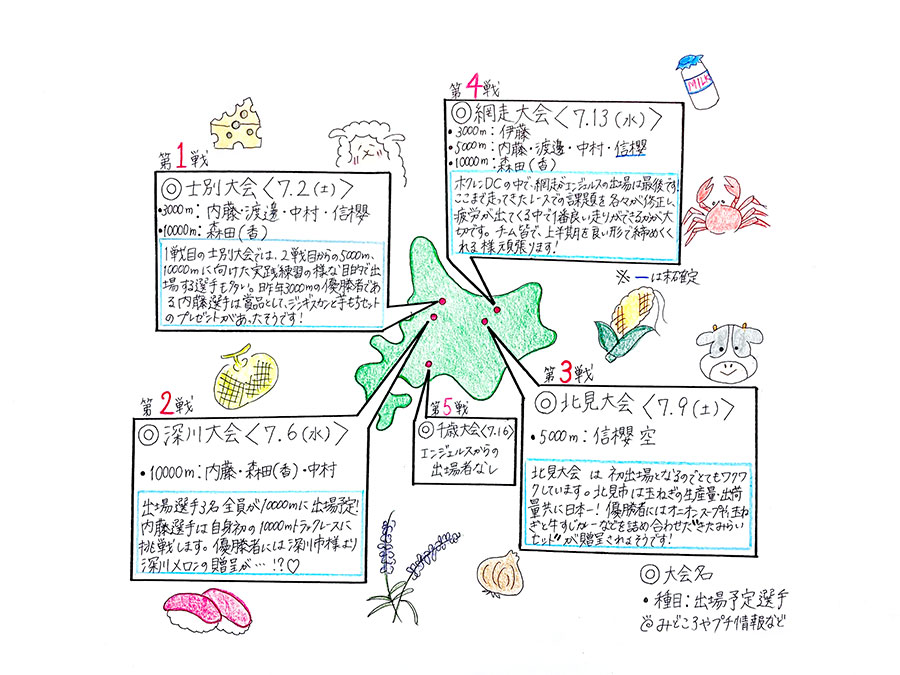 第1戦
◎士別大会〈7.2(土)〉
・3000m：内藤・渡邊・中村・信櫻
・10000m：森田(香)
1戦目の士別大会では、2戦目からの5000m、
10000mに向けた実践練習の様な目的で出
場する選手も多い。昨年3000mの優勝者であ
る内藤選手は賞品として、ジンギスカンと芋もちセット
のプレゼントがあったそうです！
第2戦
◎深川大会〈7.6(水)〉
・10000m：内藤・森田(香)・中村
出場選手3名全員が10000mに出場予定!
内藤選手は自身初の10000mトラックレースに
挑戦します。優勝者には深川市様より
深川メロンの贈呈が…!?♡
第3戦
◎北見大会〈7.9(土)〉
・5000m：信櫻 空
北見大会は初出場となるのでとてもワクワ
クしています。北見市は玉ねぎの生産量・出荷
量共に日本一！優勝者にはオニオンスープや、玉ね
ぎと牛すじカレーなどを詰め合わせた"きたみらい
セット"が贈呈されるそうです!
第4戦
◎網走大会〈7.13(水)〉
・3000m：伊藤
・5000m：内藤・渡邊・中村・信櫻
・10000m：森田(香)
ホクレンDCの中で、網走がエンジェルスの出場は最後です!
ここまで走ってきたレースでの課題を各々が修正し、
疲労が出てくる中で1番良い走りができるかが大
切です。チーム皆で、上半期を良い形で締めくく
れる様頑張ります!
※ーは未確定
第5戦
◎千歳大会〈7.16〉
エンジェルスからの
出場者なし
MILK
◎大会名
・種目：出場予定選手
◎みどころやプチ情報など